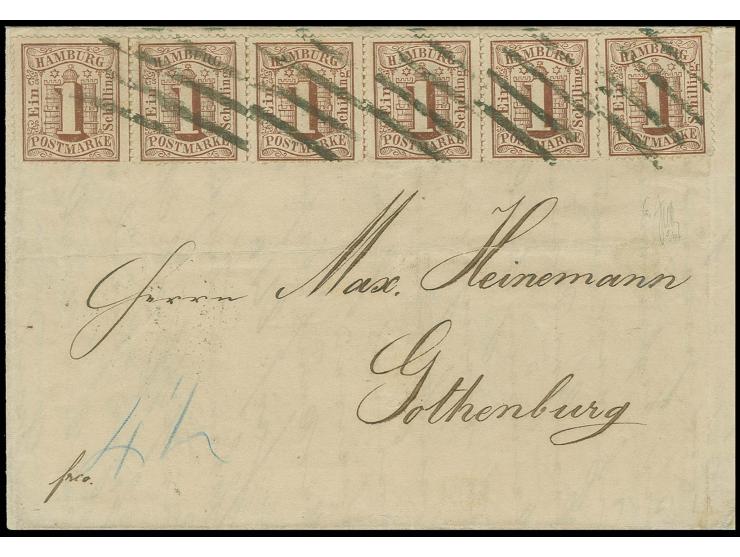 HAMBURG HAMBURG HAMBURG HAMBURG HAMBURG HAMBURG
Ein 1 Schilling Ein 1 Schilling Ein 1 Schilling Ein 1 Schilling Ein 1 Schilling Ein 1 Schilling
POSTMARKE POSTMARKE POSTMARKE POSTMARKE POSTMARKE POSTMARKE
Herrn Max. Heinemann
Gothenburg
frco.